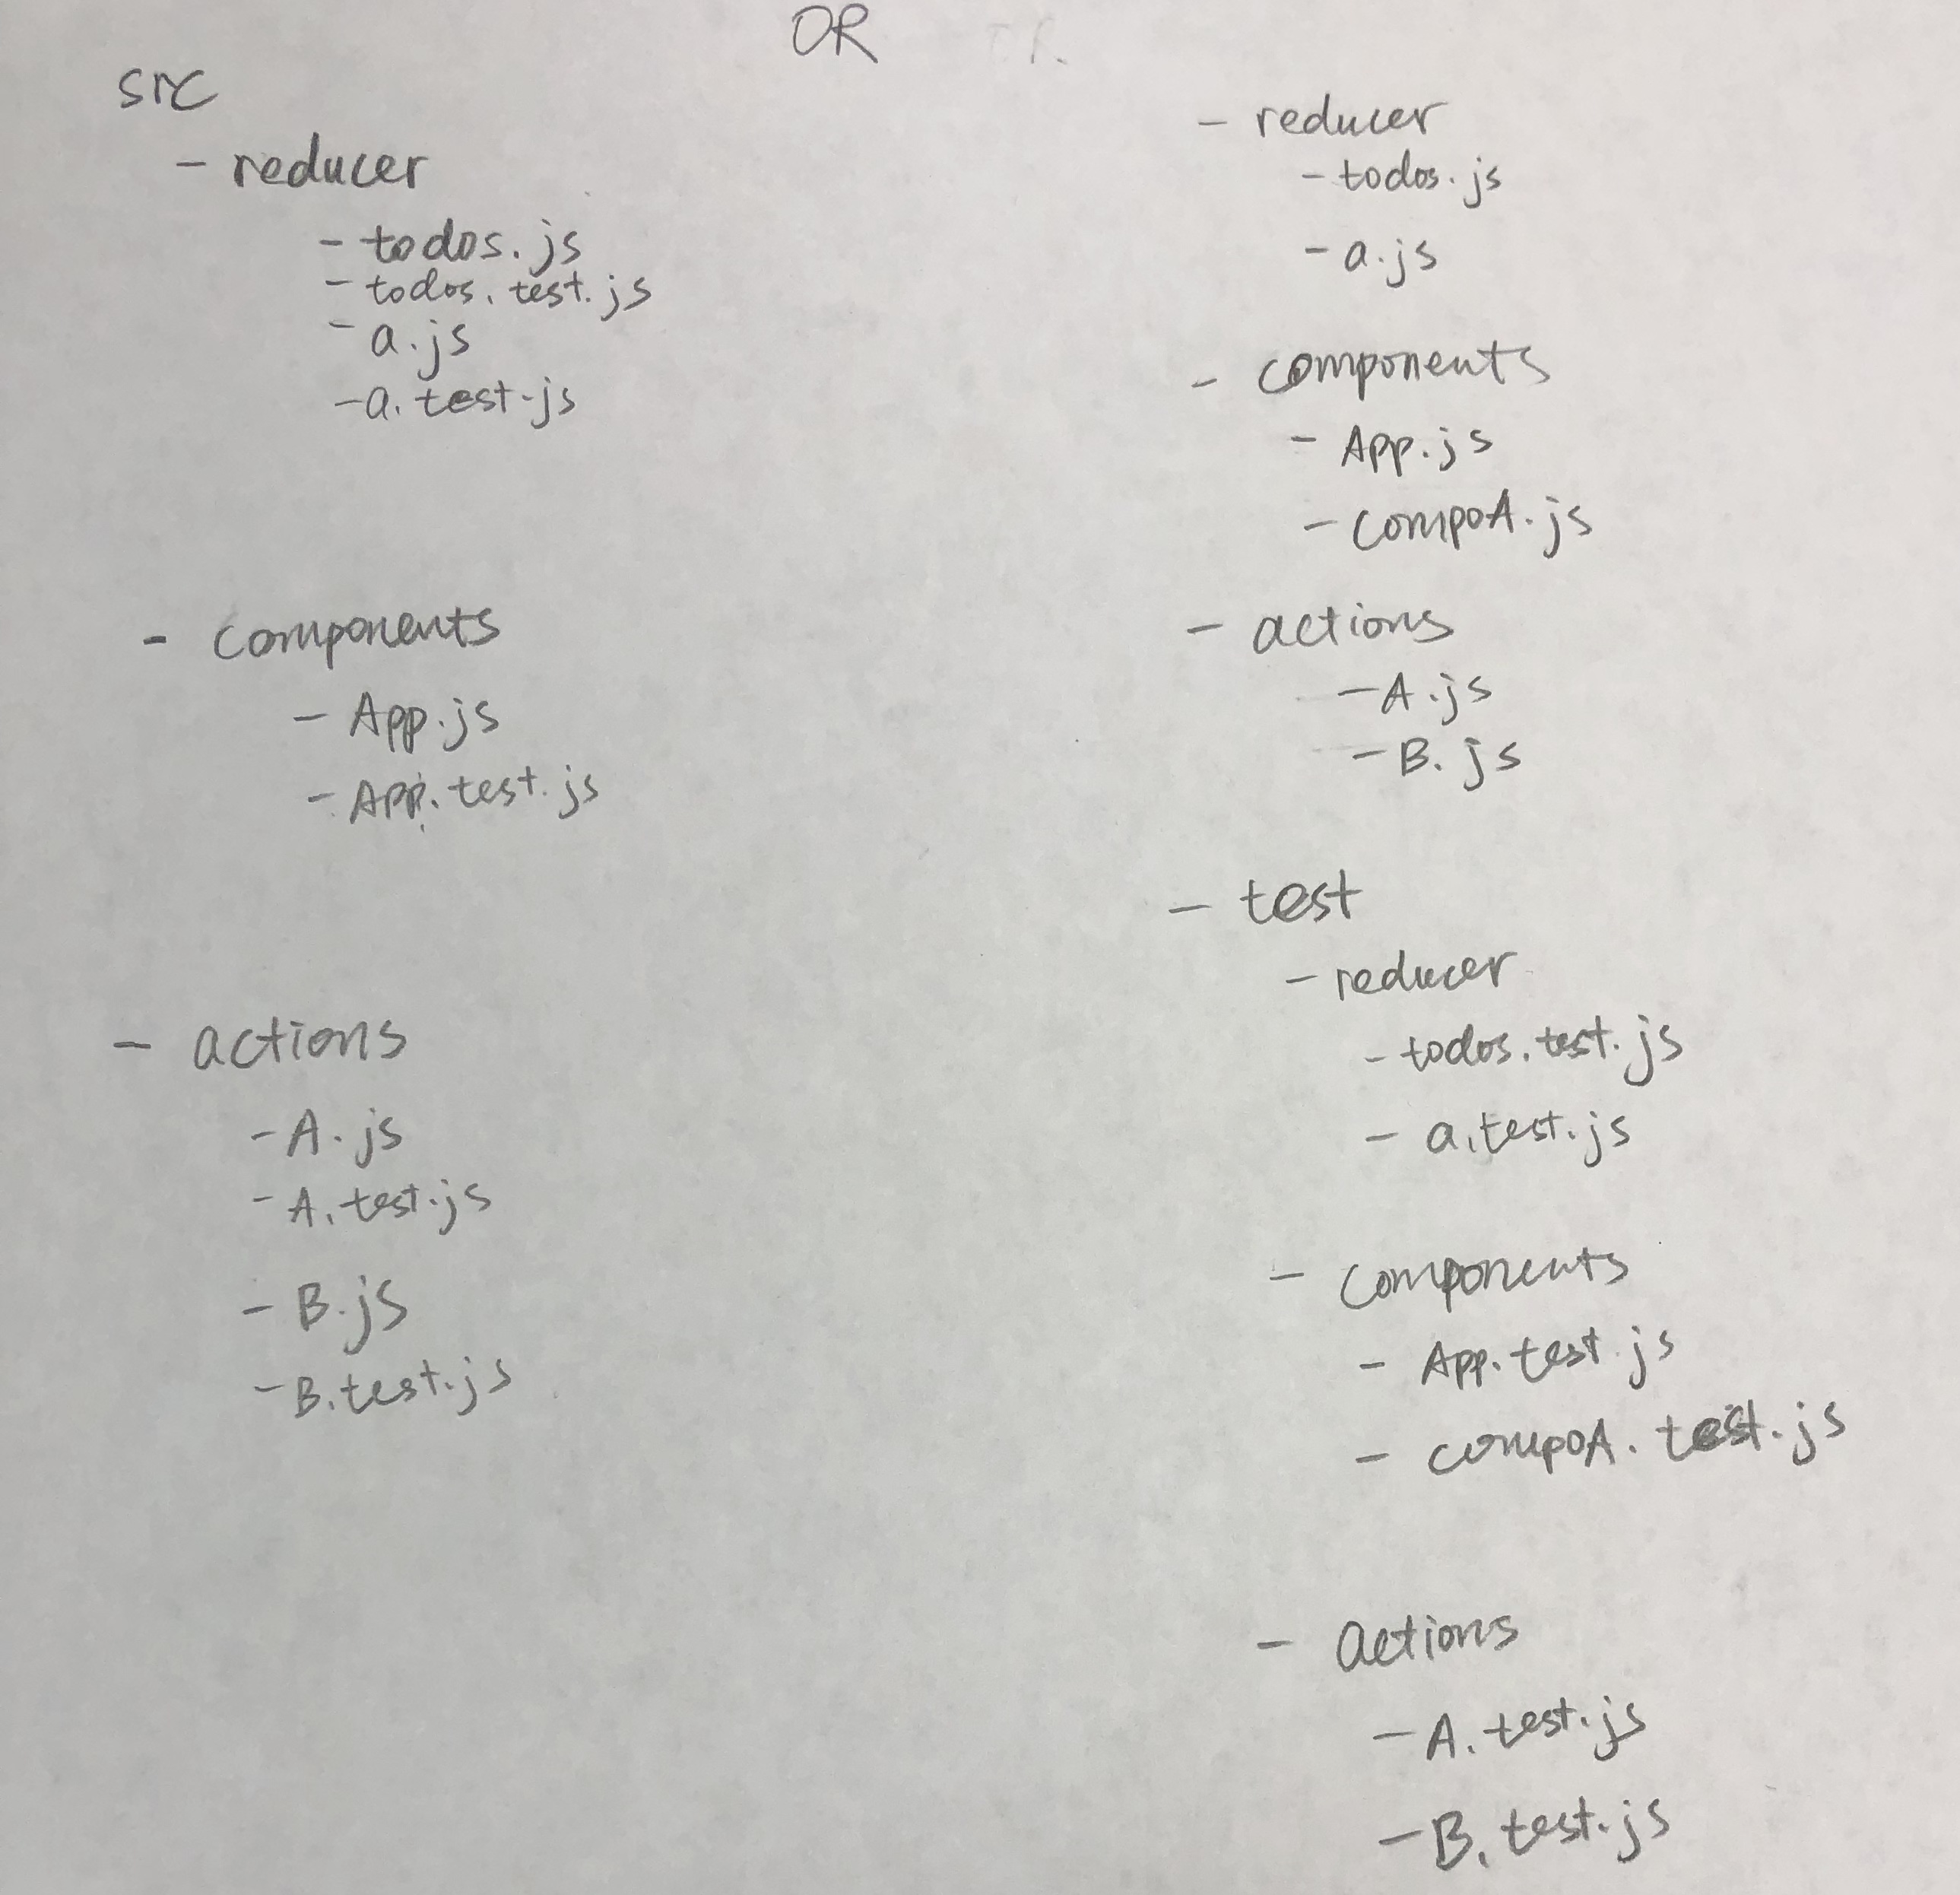 OR
src
- reducer
- todos.js
- todos.test.js
- a.js
- a.test.js
- components
- App.js
- App.test.js
- actions
- A.js
- A.test.js
- B.js
- B.test.js
- reducer
- todos.js
- a.js
- components
- App.js
- compoA.js
- actions
- A.js
- B.js
- test
- reducer
- todos.test.js
- a.test.js
- components
- App.test.js
- compoA.test.js
- actions
- A.test.js
- B.test.js